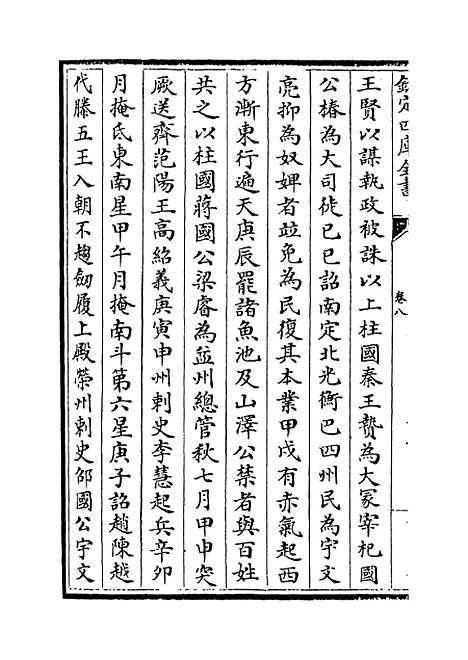 欽定四庫全書
卷八
王賢以謀執政被誅以上柱國秦王贄為大冢宰杞國
公椿為大司徒己巳詔南定北光衡巴四州民為宇文
亮抑為奴婢者並免為民復其本業甲戌有赤氣起西
方漸東行遍天庚辰罷諸魚池及山澤公禁者與百姓
共之以柱國蔣國公梁睿為益州總管秋七月甲申突
厥送齊范陽王高紹義庚寅申州刺史李慧起兵辛卯
月掩氐東南星甲午月掩南斗第六星庚子詔趙陳越
代滕五王入朝不趨劒履上殿榮州刺史邵國公宇文